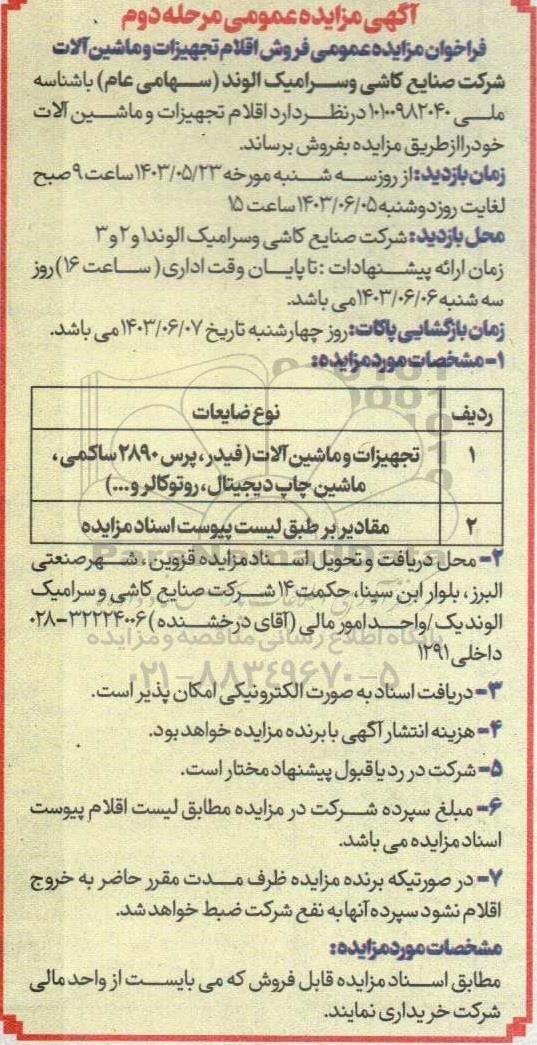 آگهی مزایده عمومی مرحله دوم
فراخوان مزایده عمومی فروش اقلام تجهیزات و ماشین آلات
شرکت صنایع کاشی وسرامیک الوند (سهامی عام) باشناسه
ملی ۱۰۱۰۰۹۸۲۰۴۰ درنظر دارد اقلام تجهیزات و ماشین آلات
خود را از طریق مزایده بفروش برساند.
زمان بازدید: از روز سه شنبه مورخه ۱۴۰۳/۰۵/۲۳ ساعت ۹ صبح
لغایت روز دوشنبه ۱۴۰۳/۰۶/۰۵ ساعت ۱۵
محل بازدید: شرکت صنایع کاشی وسرامیک الوند۱ و ۲ و ۳
زمان ارائه پیشنهادات : تا پایان وقت اداری ( ساعت ۱۶) روز
سه شنبه ۱۴۰۳/۰۶/۰۶ می باشد.
زمان بازگشایی پاکات: روز چهارشنبه تاریخ ۱۴۰۳/۰۶/۰۷ می باشد.
۱- مشخصات مورد مزایده:
ردیف نوع ضایعات
۱ تجهیزات و ماشین آلات ( فیدر، پرس ۲۸۹۰ ساکمی،
ماشین چاپ دیجیتال، روتوکالر و...)
۲ مقادیر بر طبق لیست پیوست اسناد مزایده
۲- محل دریافت و تحویل اسناد مزایده قزوین، شهرصنعتی
البرز، بلوار ابن سینا، حکمت ۱۴ شرکت صنایع کاشی و سرامیک
الوند یک /واحد امور مالی (آقای درخشنده) ۳۲۲۲۴۰۰۶-۰۲۸
داخلی ۱۲۹۱
۳- دریافت اسناد به صورت الکترونیکی امکان پذیر است.
۴- هزینه انتشار آگهی با برنده مزایده خواهد بود.
۵- شرکت در رد یا قبول پیشنهاد مختار است.
۶- مبلغ سپرده شرکت در مزایده مطابق لیست اقلام پیوست
اسناد مزایده می باشد.
۷- در صورتیکه برنده مزایده ظرف مدت مقرر حاضر به خروج
اقلام نشود سپرده آنها به نفع شرکت ضبط خواهد شد.
مشخصات مورد مزایده:
مطابق اسناد مزایده قابل فروش که می بایست از واحد مالی
شرکت خریداری نمایند.
ParsNamadData
پایگاه اطلاع رسانی مناقصه و مزایده
۰۲۱-۸۸۳۴۹۶۷۰-۵